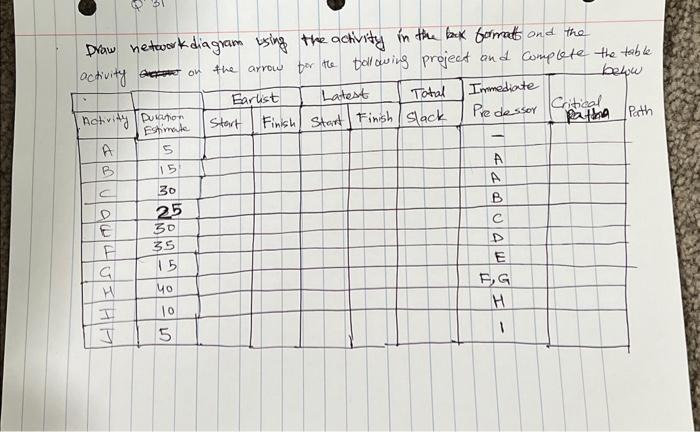 Q 31
Draw network diagram using the activity in the box formats and the
activity on the arrow for the following project and Complete the table
below
Earlist Latest Total Immediate
Activity Duration Estimate Start Finish Start Finish Slack Predessor Critical Path
A 5 —
B 15 A
C 30 A
D 25 B
E 30 C
F 35 D
G 15 E
H 40 F,G
I 10 H
J 5 I